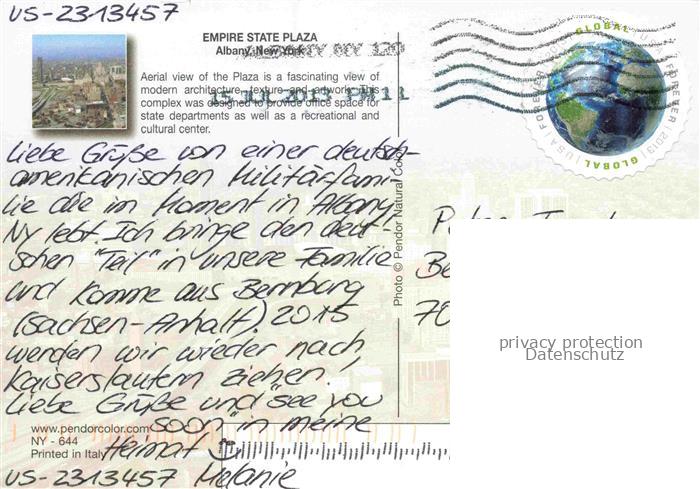 US-2313457
EMPIRE STATE PLAZA
Albany, New York
Aerial view of the Plaza is a fascinating view of
modern architecture, texture and artwork. This
complex was designed to provide office space for
state departments as well as a recreational and
cultural center.
15 JUL 2013 PM 11
GLOBAL
FOREVER
2013
GLOBAL
USA
FOREVER
Liebe Grüße von einer deutsch-
amerikanischen Militärfami-
lie die im Moment in Albany,
NY lebt. Ich bringe den deut-
schen "Teil" in unsere Familie
und komme aus Bernburg
(Sachsen-Anhalt). 2015
werden wir wieder nach
Kaiserslautern ziehen!
Liebe Grüße und "see you
soon" in meine
Heimat
Melanie
US-2313457
www.pendorcolor.com
NY - 644
Printed in Italy
Photo © Pendor Natural Color
Be
70
privacy protection
Datenschutz